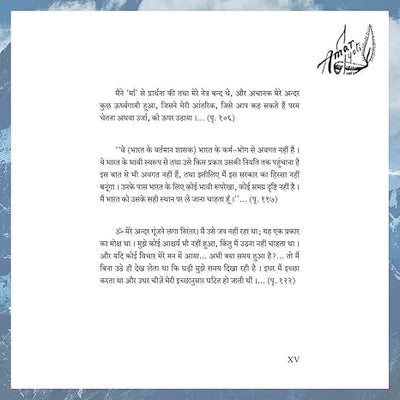 Amar
Jyoti
मैंने 'माँ' से प्रार्थना की तथा मेरे नेत्र बन्द थे, और अचानक मेरे अन्दर
कुछ ऊर्ध्वगामी हुआ, जिसने मेरी आंतरिक, जिसे आप कह सकते हैं परम
चेतना अथवा उर्जा, को ऊपर उठाया ।... (पृ. १०६)
"वे (भारत के वर्तमान शासक) भारत के कर्म-भोग से अवगत नहीं हैं ।
वे भारत के भावी स्वरूप से तथा उसे किस प्रकार उसकी नियति तक पहुंचाना है
इस बात से भी अवगत नहीं हैं, तथा इसीलिए मैं इस सरकार का हिस्सा नहीं
बनूंगा । उनके पास भारत के लिए कोई भावी रूपरेखा, कोई समग्र दृष्टि नहीं है ।
मैं भारत को उसके सही स्थान पर ले जाना चाहता हूँ ।"... (पृ. ११७)
ॐ मेरे अन्दर गूंजने लगा निरंतर। मैं उसे जप नहीं रहा था; यह एक प्रकार
का मोक्ष था । मुझे कोई आश्चर्य भी नहीं हुआ, किंतु मैं उठना नहीं चाहता था ।
और यदि कोई विचार मेरे मन में आया... अभी क्या समय हुआ है?... तो मैं
बिना उठे ही देख लेता था कि घड़ी मुझे समय दिखा रही है । इधर मैं इच्छा
करता था और उधर चीज़ें मेरी इच्छानुसार घटित हो जाती थीं ।... (पृ. १२२)
XV